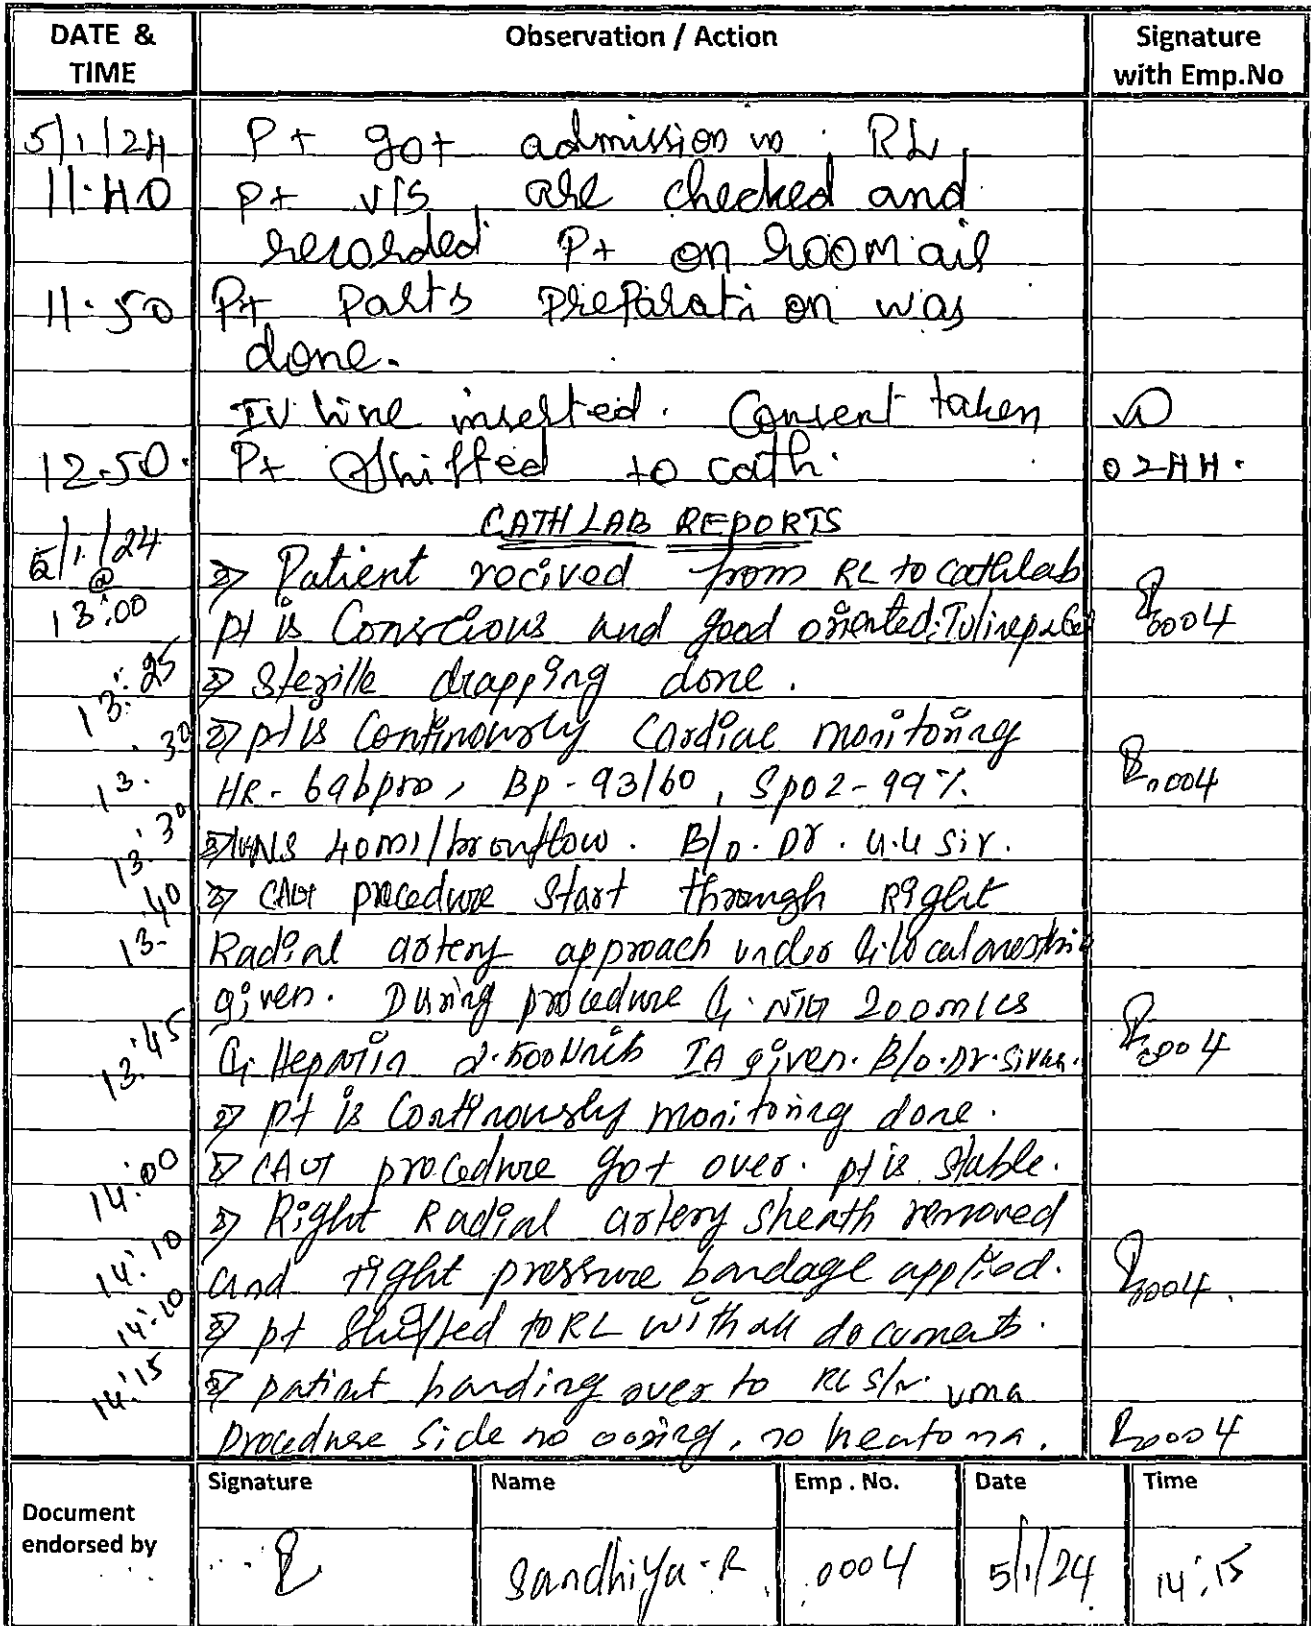 DATE & TIME | Observation / Action | Signature with Emp.No
5/1/24 Pt got admission in RL
11.40 Pt V/S are checked and
recorded Pt on room air
11.50 Pt Parts Preparation was
done.
IV line inserted. Consent taken
12.50. Pt Shiffed to cath. 0244.
CATH LAB REPORTS
5/1/24 @ Patient recived from RL to cathlab
13:00 pt is Conscious and good oriented. 0004
13:25 Sterille drapping done.
13.30 pt is Continously Cardiac monitoring
HR - 69bpm, Bp - 93/60, Spo2 - 99%. 0004
13:30 NS 40ml/hr onflow. B/o. Dr. U.U Sir.
13.40 CAG procedure Start through Right
Radial artery approach under
given. During procedure NTG 200mics
13:45 Heparin 2.500Units IA given. B/o. Dr. 0004
pt is Continously monitoring done.
14:00 CAG procedure got over. pt is Stable.
14:10 Right Radial artery Sheath removed
and tight pressure bandage applied. 0004.
14:10 pt Shifted to RL with all documents.
14:15 patint handing over to RL S/N. uma
procedure Side no oozing, no heatoma. 0004
Document endorsed by | Signature | Name | Emp . No. | Date | Time
Sandhiya. R | 0004 | 5/1/24 | 14:15